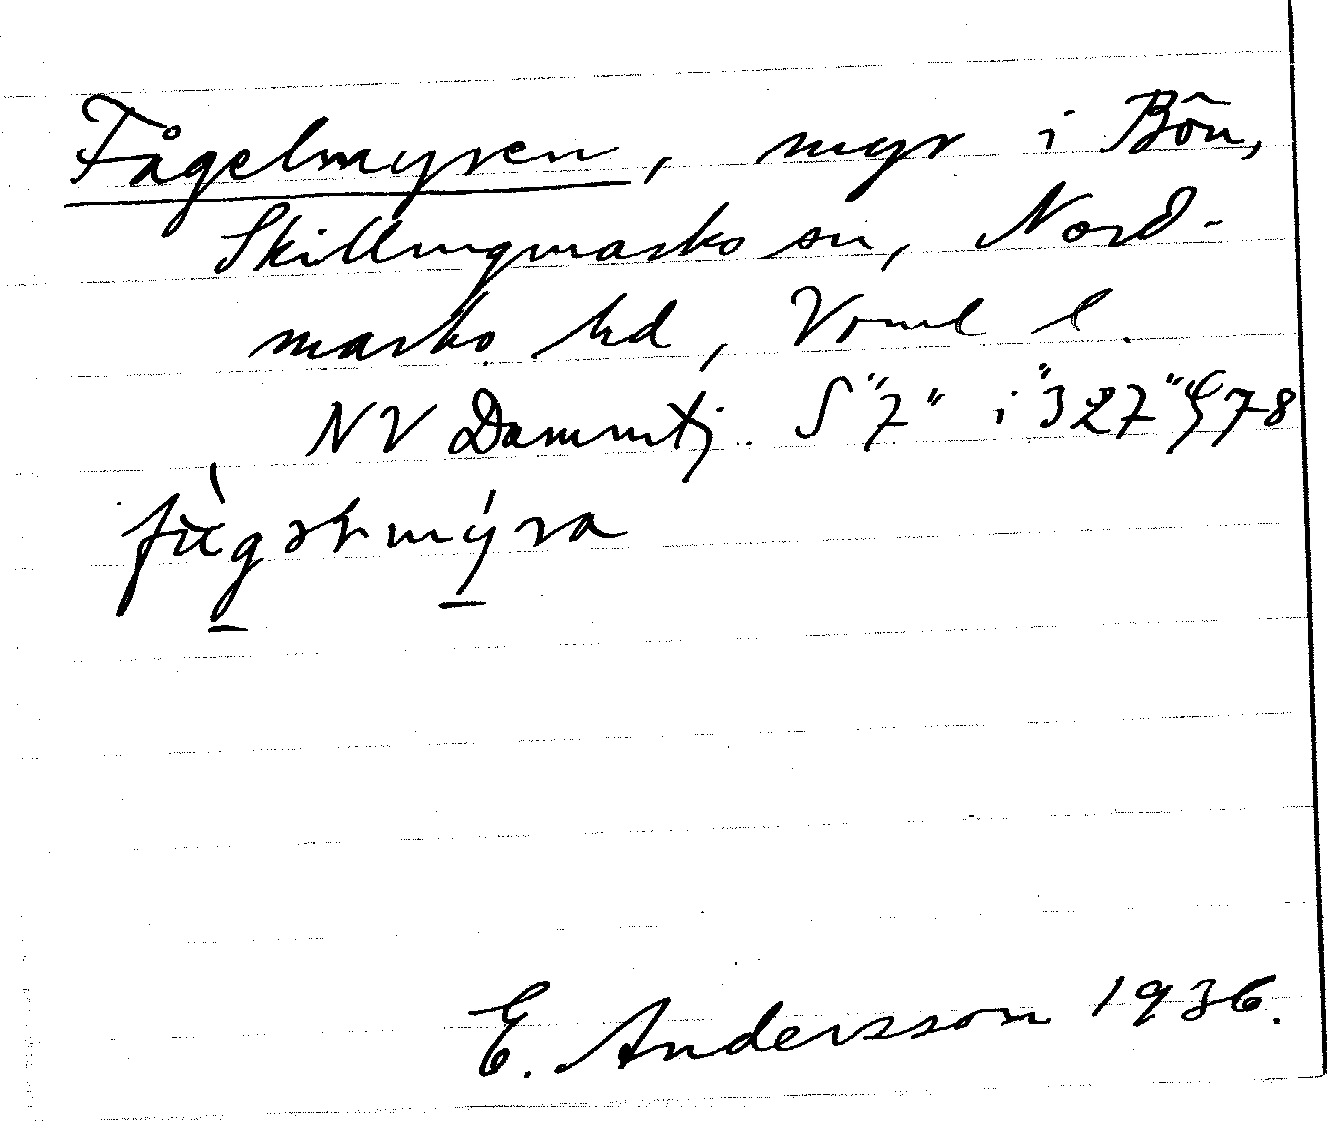 Fågelmyren, myr i Bön,
Skillingmarks sn, Nord-
marks hd, Vrml l.
NV Dammtj. S "7" i "327" G78
fùgəɫmýra
E. Andersson 1936.